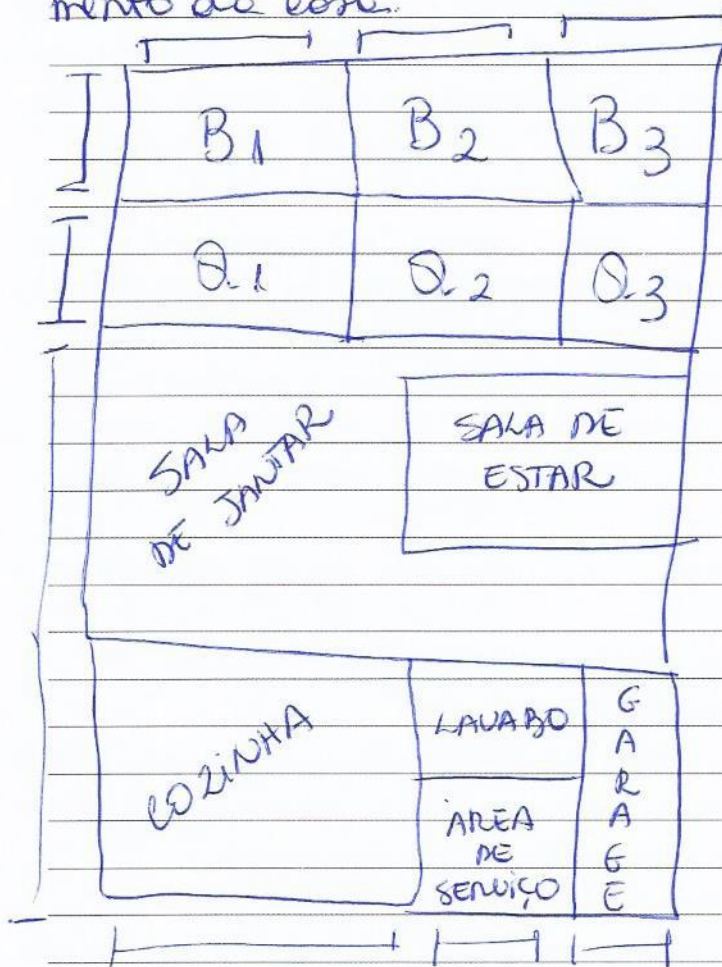 mento da casa.
B1 B2 B3
Q.1 Q.2 Q.3
SALA
DE JANTAR
SALA DE
ESTAR
COZINHA
LAVABO
ÁREA
DE
SERVIÇO
G
A
R
A
G
E